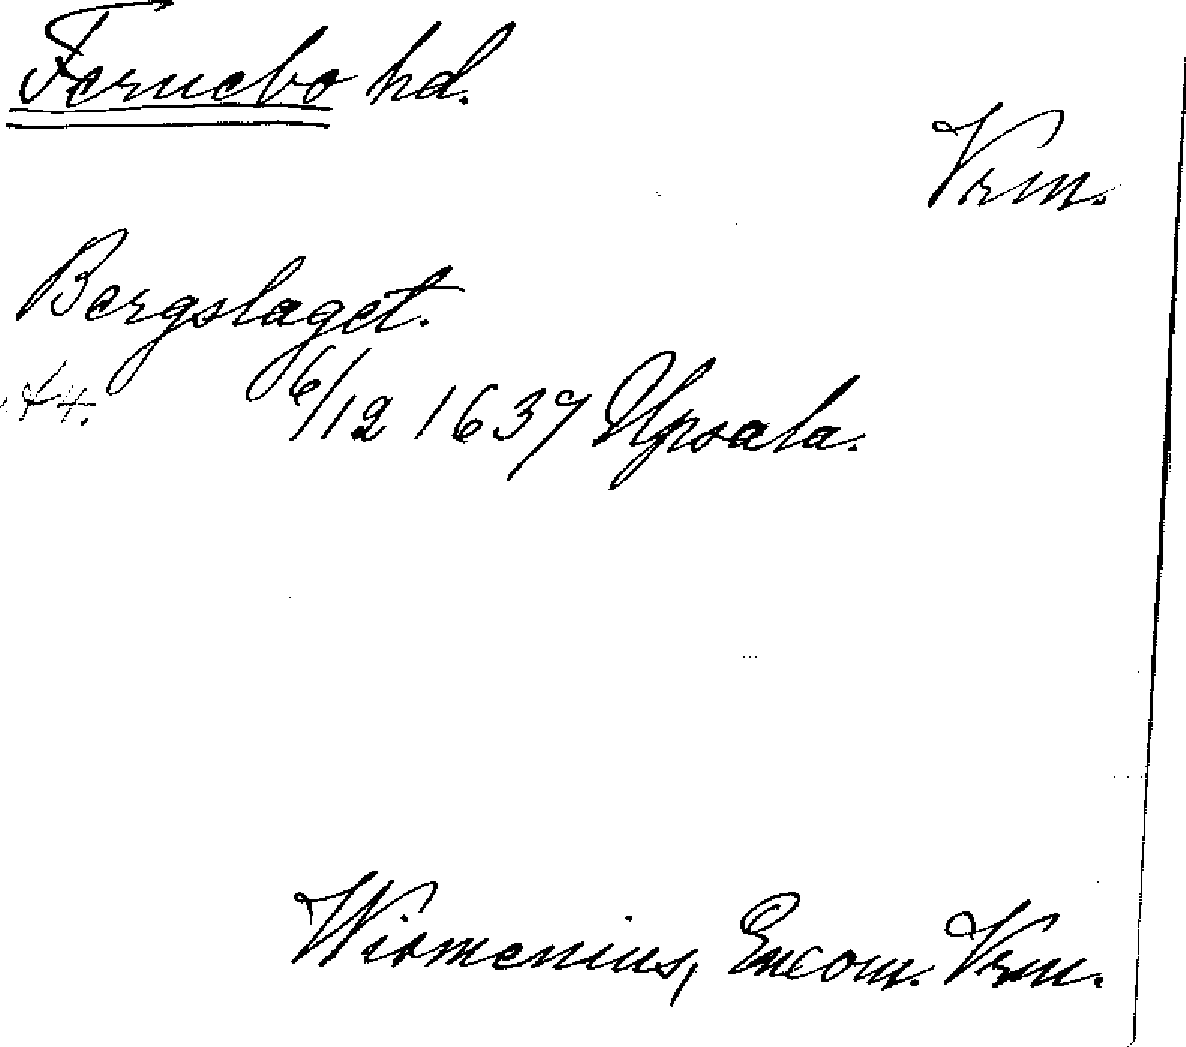 Fernebo hd.
Vrm.
Bergslaget.
6/12 1637 Upsala.
Wirmenius, Encom. Vrm.